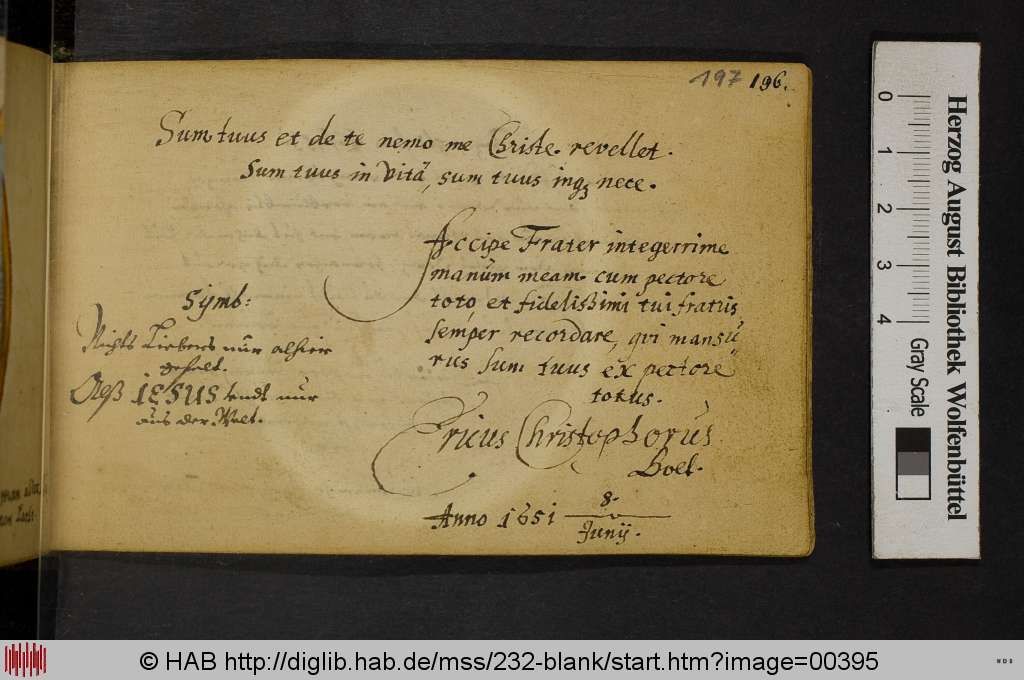 197 196.
Sum tuus et de te nemo me Christe revellet.
Sum tuus in vitâ, sum tuus inq; nece.
Accipe Frater integerrime
manùm meam cum pectore
toto, et fidelißimi tui fratris
semper recordare, qvi mansu
rus sum tuus ex pectore
totus.
Symb:
Nichts Liebers nur alhier
gefelt.
Alß IESUS undt nur
aus der Welt.
Ericus Christophorus
Boel.
Anno 1651 8.
Junij.
Herzog August Bibliothek Wolfenbüttel
0 1 2 3 4
Gray Scale
© HAB http://diglib.hab.de/mss/232-blank/start.htm?image=00395